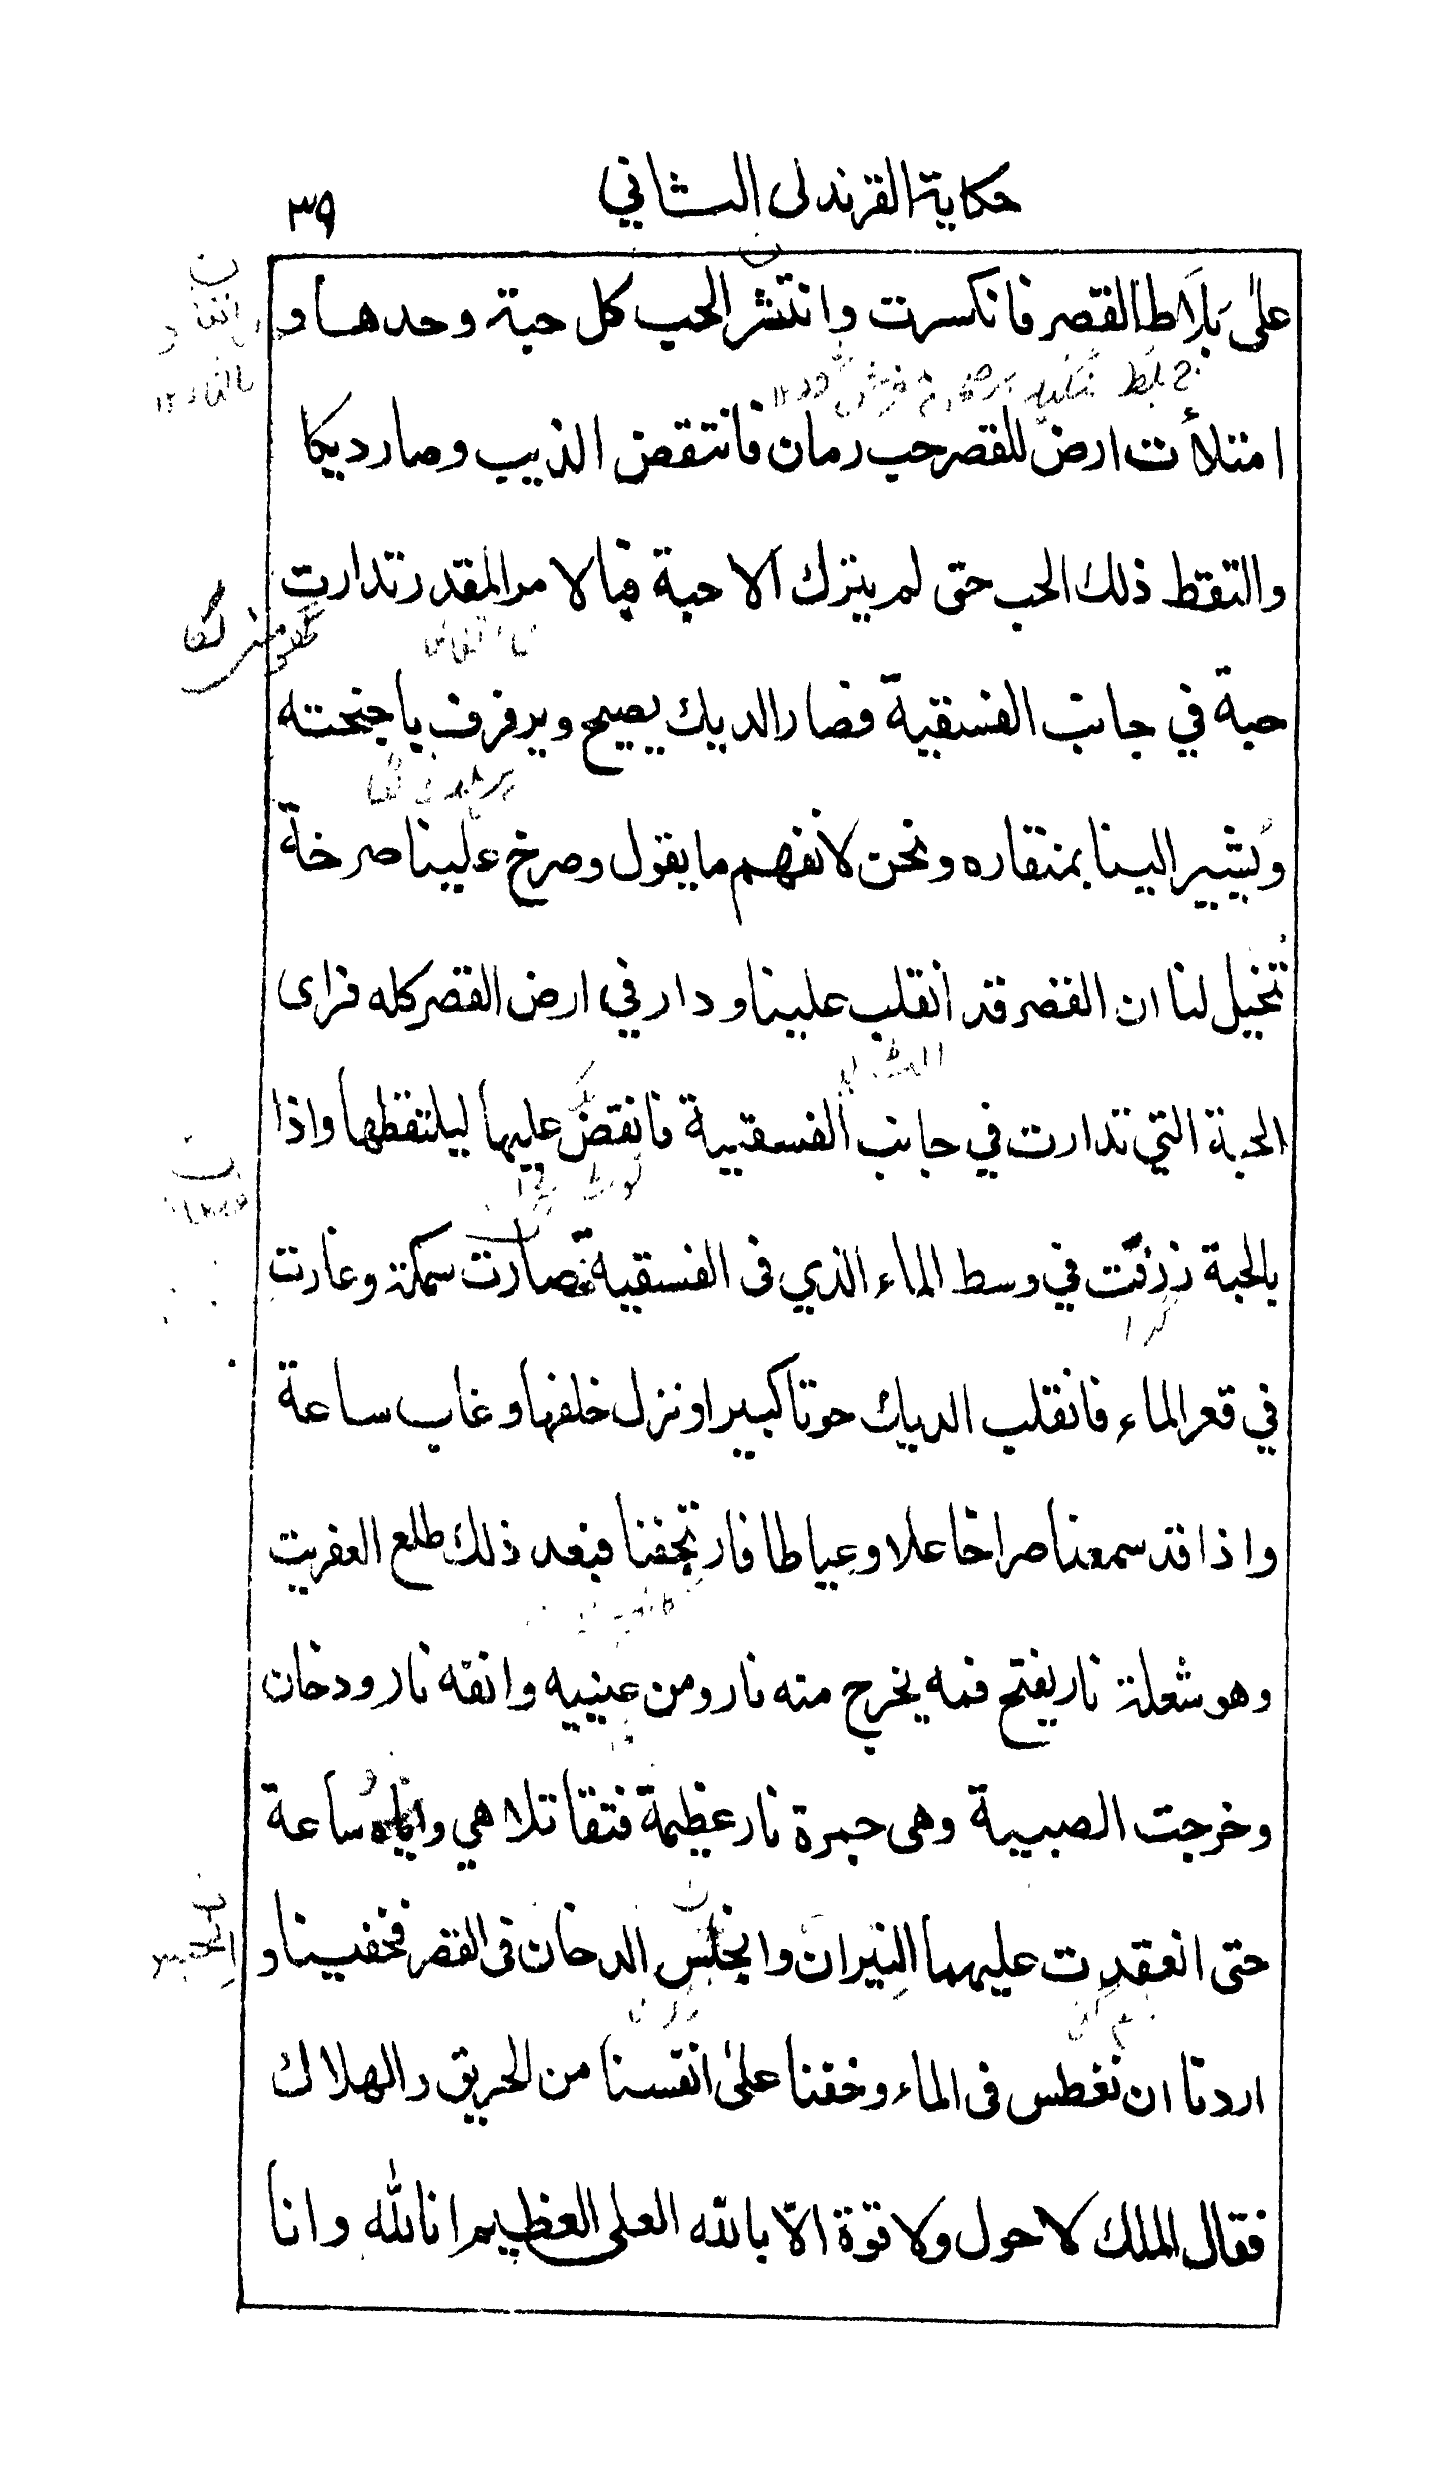 حكاية القرندلى الثاني ٣٩
علىٰ بَلَاط القصر فانكسرت وانتشر الحب كل حبة وحدها و
امتلأت ارض القصر حب رمان فانتقض الذيب وصار ديكا
والتقط ذلك الحب حتى لم يترك الا حبة فبالامر المقدر تدارت
حبة في جانب الفسقية فصار الديك يصيح ويرفرف باجنحته
ويشير الينا بمنقاره ونحن لانفهم ما يقول وصرخ علينا صرخة
تخيل لنا ان القصر قد انقلب علينا ودار في ارض القصر كله فراى
الحبة التي تدارت في جانب الفسقية فانقض عليها ليلتقطها واذا
بالحبة زرقت في وسط الماء الذي فى الفسقية فصارت سمكة وغارت
في قعر الماء فانقلب الديك حوتا كبيرا ونزل خلفها وغاب ساعة
واذا قد سمعنا صراخا علا وعياطا فارتجفنا فبعد ذلك طلع العفريت
وهو شعلة نار يفتح فمه يخرج منه نار ومن عينيه وانفه نار ودخان
وخرجت الصبية وهى جمرة نار عظيمة فتقاتلا هي واياه ساعة
حتى انعقدت عليهما النيران وانجلس الدخان فى القصر فخفينا و
اردنا ان نغطس فى الماء وخفنا علىٰ انفسنا من الحريق والهلاك
فقال الملك لا حول ولا قوة الّا بالله العلى العظيم انا لله وانا